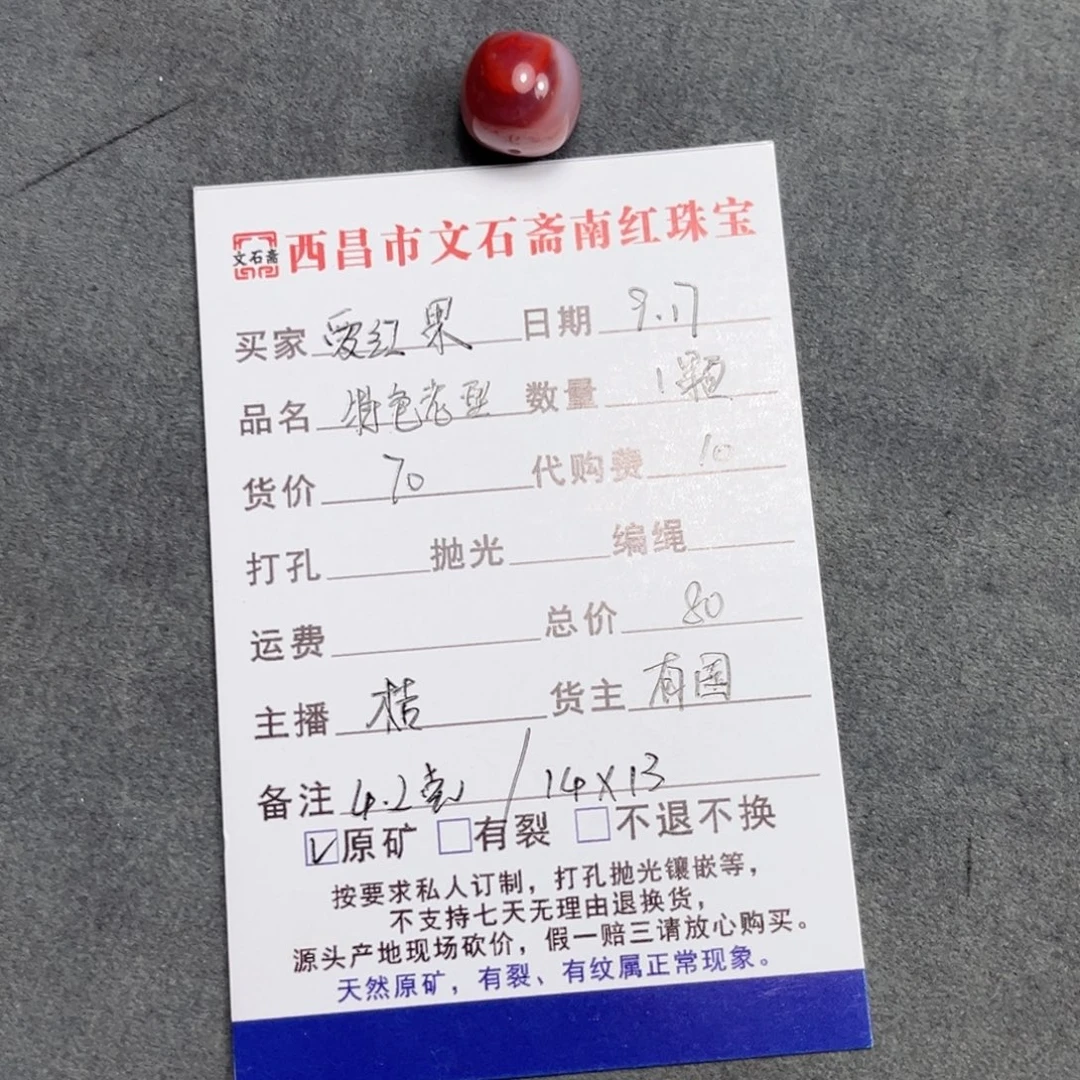 文石斋 西昌市文石斋南红珠宝
买家 爱红果 日期 9.17
品名 特色老型 数量 1颗
货价 70 代购费 10
打孔 抛光 编绳
运费 总价 80
主播 桔 货主 有国
备注 4.2克 / 14×13
☑原矿 □有裂 □不退不换
按要求私人订制，打孔抛光镶嵌等，
不支持七天无理由退换货，
源头产地现场砍价，假一赔三请放心购买。
天然原矿，有裂、有纹属正常现象。